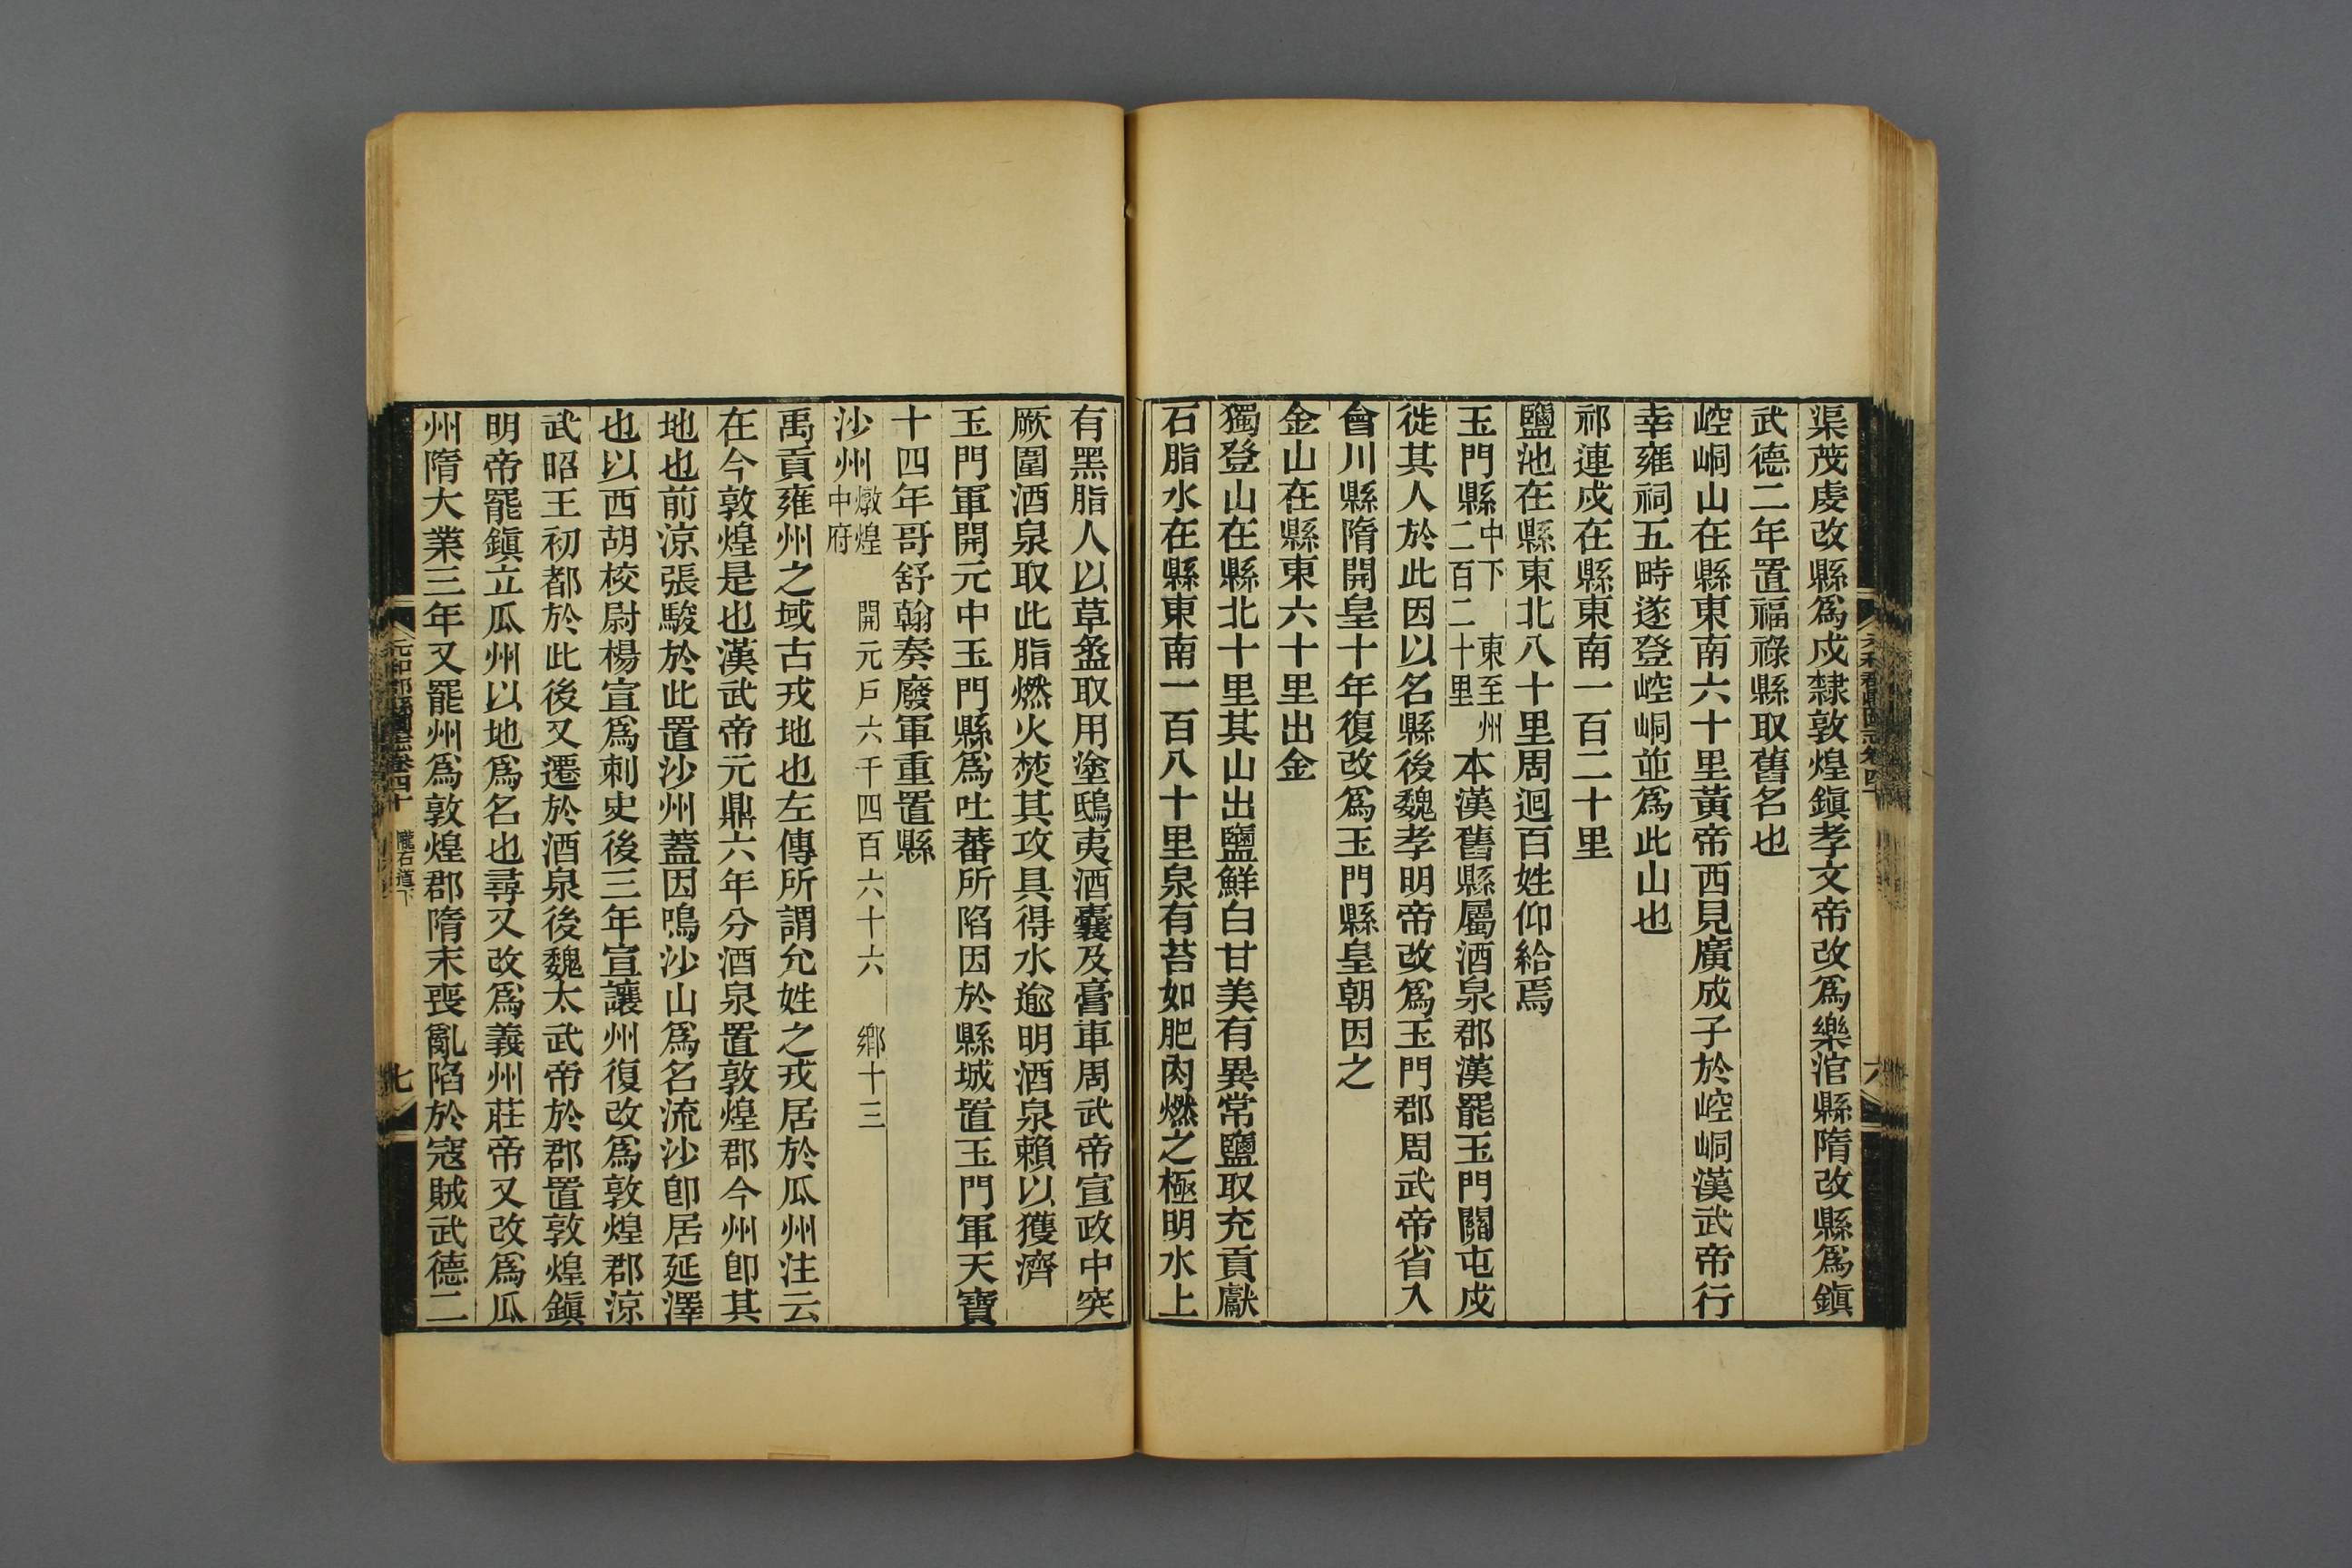 渠茂虔改縣爲戍隸敦煌鎭孝文帝改爲樂涫縣隋改縣爲鎭
武德二年置福祿縣取舊名也
崆峒山在縣東南六十里黃帝西見廣成子於崆峒漢武帝行
幸雍祠五時遂登崆峒並爲此山也
祁連戍在縣東南一百二十里
鹽池在縣東北八十里周迴百姓仰給焉
玉門縣中下 東至州二百二十里 本漢舊縣屬酒泉郡漢罷玉門關屯戍
徙其人於此因以名縣後魏孝明帝改爲玉門郡周武帝省入
會川縣隋開皇十年復改爲玉門縣皇朝因之
金山在縣東六十里出金
獨登山在縣北十里其山出鹽鮮白甘美有異常鹽取充貢獻
石脂水在縣東南一百八十里泉有苔如肥肉燃之極明水上
有黑脂人以草盝取用塗鴟夷酒囊及膏車周武帝宣政中突
厥圍酒泉取此脂燃火焚其攻具得水逾明酒泉賴以獲濟
玉門軍開元中玉門縣爲吐蕃所陷因於縣城置玉門軍天寶
十四年哥舒翰奏廢軍重置縣
沙州燉煌中府 開元戶六千四百六十六 鄉十三
禹貢雍州之域古戎地也左傳所謂允姓之戎居於瓜州注云
在今敦煌是也漢武帝元鼎六年分酒泉置敦煌郡今州卽其
地也前涼張駿於此置沙州蓋因鳴沙山爲名流沙卽居延澤
也以西胡校尉楊宣爲刺史後三年宣讓州復改爲敦煌郡涼
武昭王初都於此後又遷於酒泉後魏太武帝於郡置敦煌鎭
明帝罷鎭立瓜州以地爲名也尋又改爲義州莊帝又改爲瓜
州隋大業三年又罷州爲敦煌郡隋末喪亂陷於寇賊武德二
元和郡縣圖志卷四十 隴右道下 七